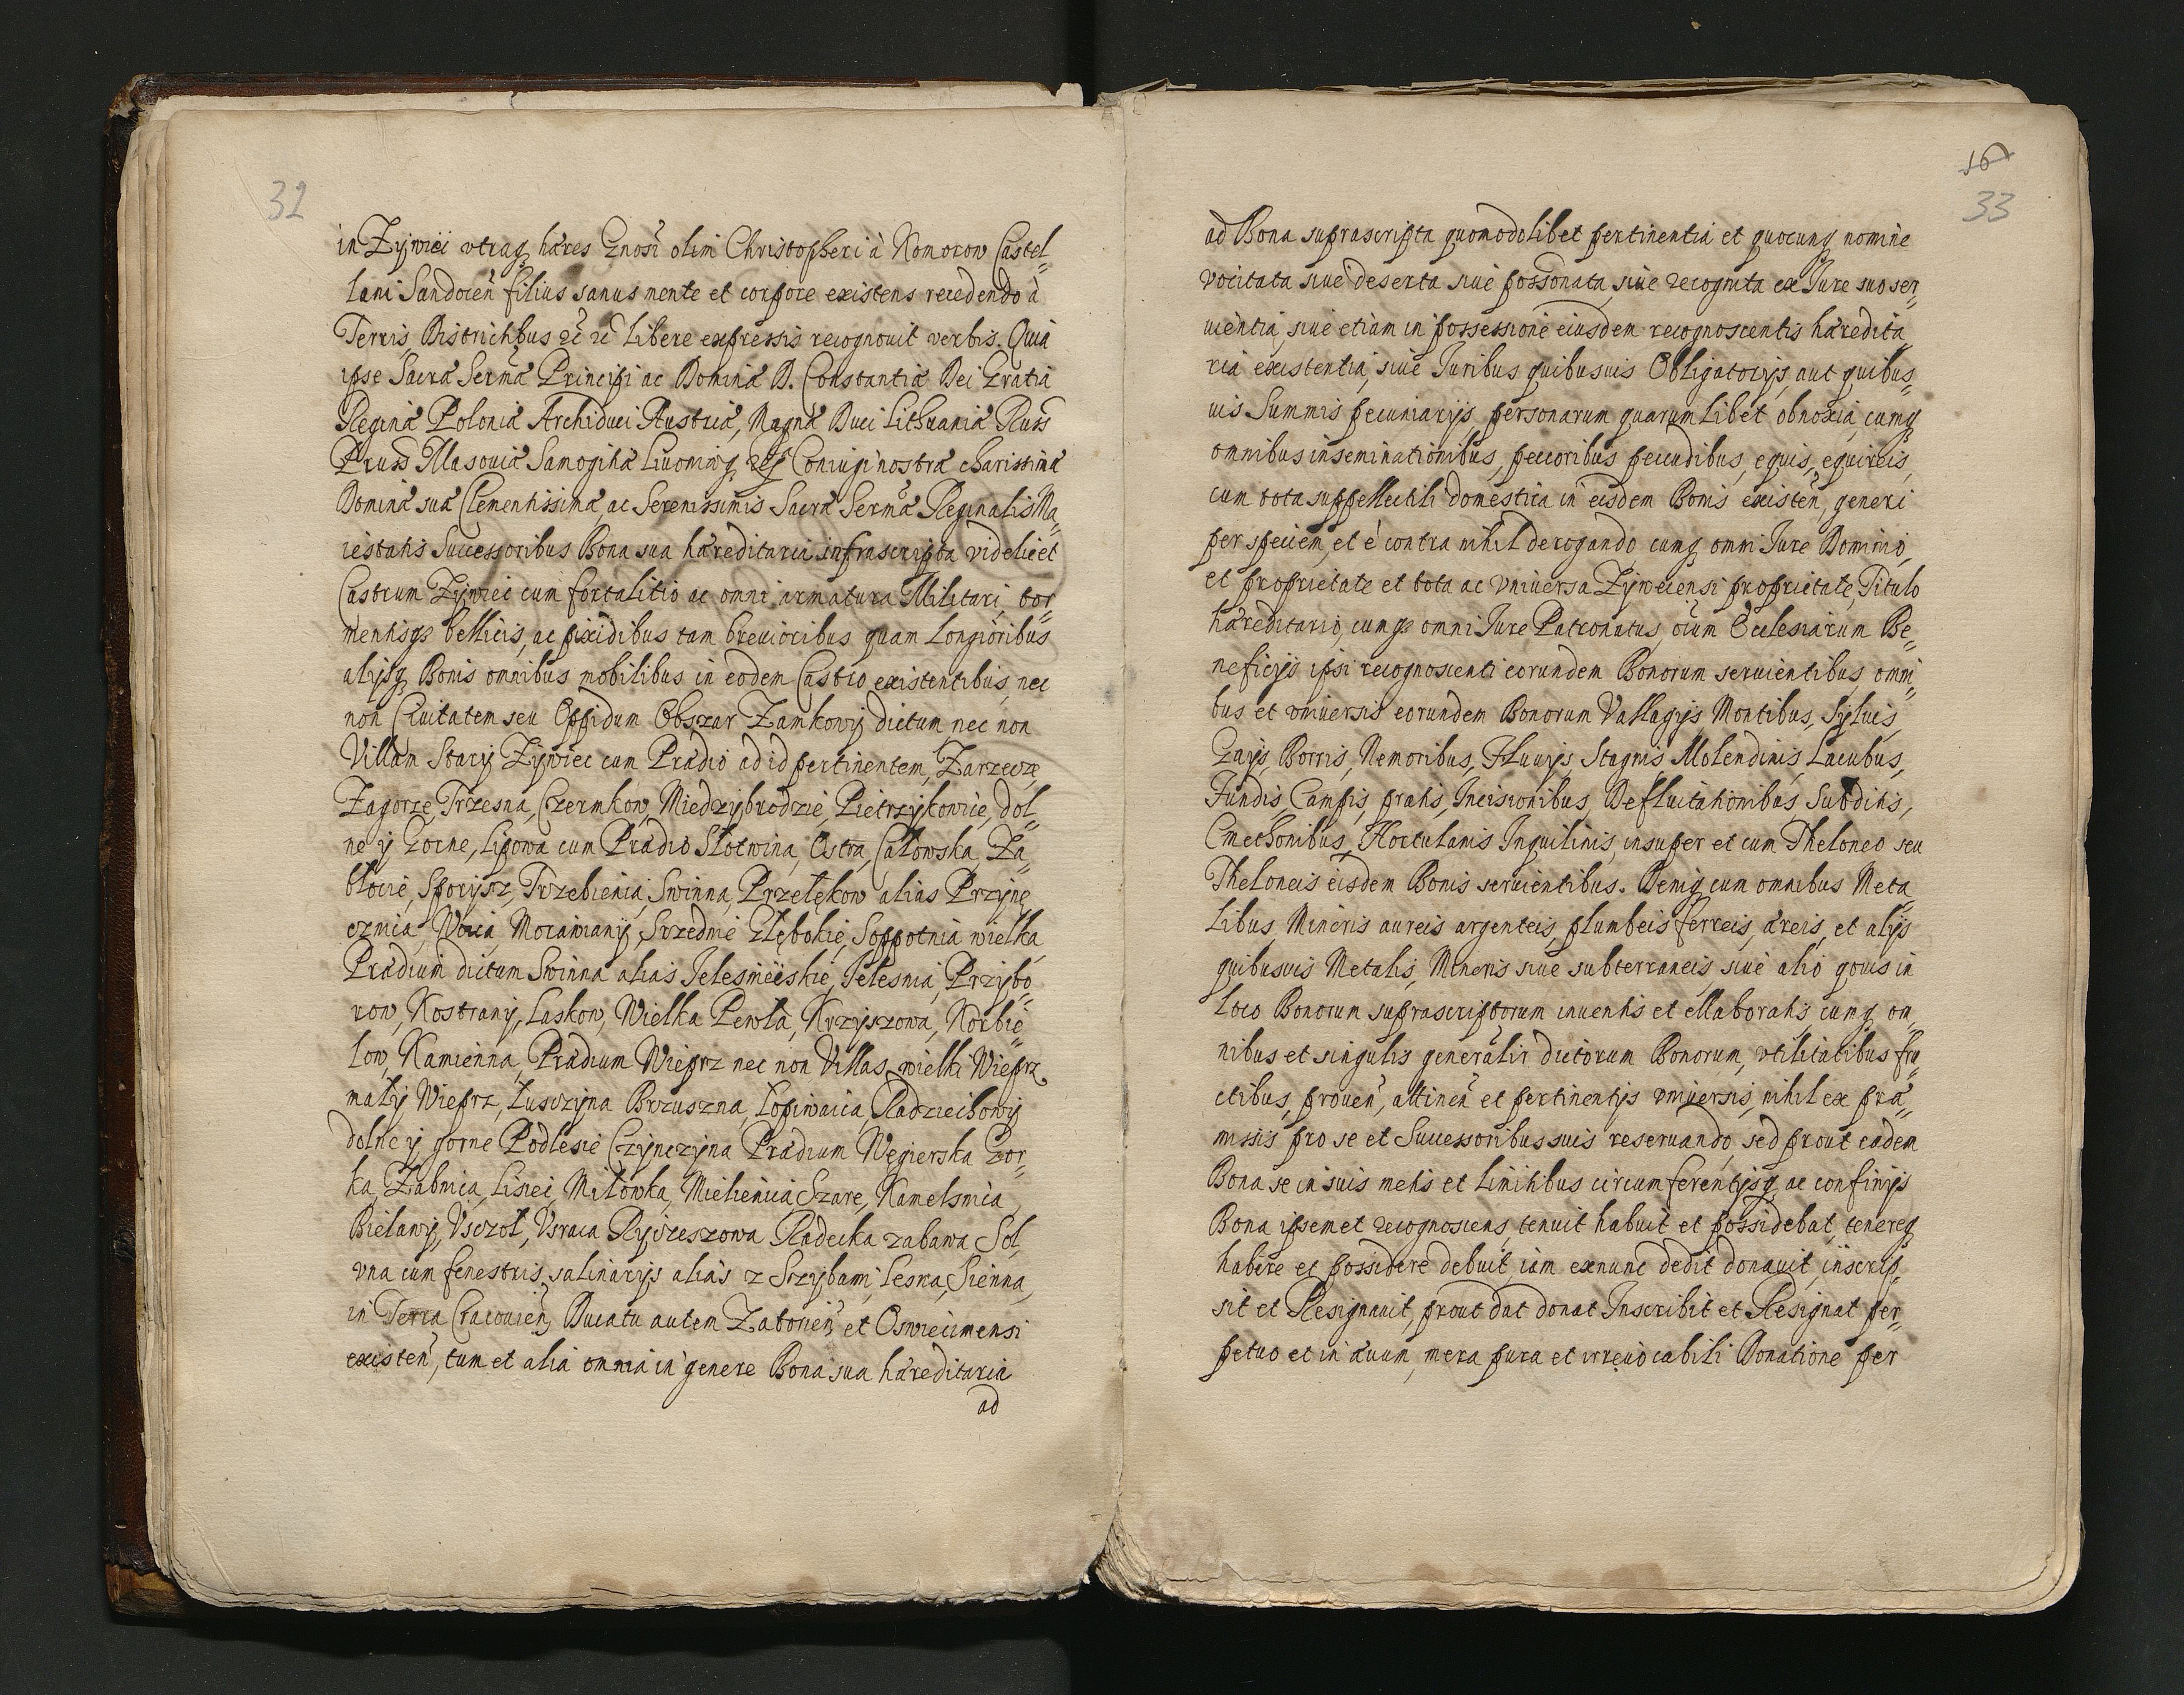 32
in Zÿwiec vtraq hæres Gnosi olim Christopheri à Komorow Castel-
lani Sandocien filius sanus mente et corpore existens recedendo à
Terris Districtibus &c &c Libere expressis recognouit verbis. Quia
ipse Sacræ Sermæ Principi ac Dominæ D. Constantiæ Dei Gratia
Reginæ Poloniæ Archiduci Austriæ, Magnæ Duci Lithuaniæ Russ
Pruss Masouiæ Samogitiæ Liuoniæq Coniugi nostræ charissimæ
Dominæ suæ Clementissimæ, ac Serenissimis Sacræ Sermæ Reginalis Ma-
iestatis Successoribus Bona sua hæreditaria infrascripta videlicet
Castrum Zÿwiec cum fortalitio ac omni armatura Militari, tor-
mentisq bellicis, ac pixidibus tam breuioribus quam Longioribus
alijsq Bonis omnibus mobilibus in eodem Castro existentibus, nec
non Ciuitatem seu Oppidum Obszar Zamkowÿ dictum, nec non
Villam Starÿ Zÿwiec cum Prædio ad id pertinentem, Zarzecze,
Zagorze, Trzesna, Czernikow, Miedzÿbrodzie, Pietrzÿkowice, dol-
ne ÿ Gorne, Lipowa cum Prædio Slotwina, Ostra, Calowska, Za-
blocie, Sporÿsz, Trzebienia, Swinna, Przelękow alias Przÿnę
cznia, Morawianÿ, Srzednie Glębokie, Soppotnia wielka,
Prædium dictum Swinna alias Jelesnieiskie, Jelesnia, Przÿbo-
row, Kostranÿ, Laskow, Wielka Pewla, Krzÿszowa, Korbie-
low, Kamienna, Prædium Wieprz nec non Villas, wielki Wieprz,
malÿ Wieprz, Łusczÿna Brzuszna, Lopiwaica, Radziechowÿ
dolne ÿ gorne Podlesie Czÿnczÿna Prædium Węgierska Gor-
ka, Zabnica, Lisiec, Milowka, Mielienica, Szare, Kamelsnica,
Bielawÿ, Vsczol, Vsraca Rÿczeszowa Radecka zabawa Sol,
vna cum fenestris salinarijs alias z Szÿbami, Lesna, Sienna,
in Terra Cracouien, Ducatu autem Zatorien et Oswiecimensi
existen, tum et alia omnia in genere Bona sua hæreditaria
ad
16
33
ad Bona suprascripta quomodolibet pertinentia et quocunq nomine
vocitata siue deserta siue possonata, siue recognita ex Jure suo ser-
uientia, siue etiam in possessione eiusdem recognoscentis hæredita
ria existentia, siue Juribus quibusuis Obligatorijs, aut quibus-
uis Summis pecuniarijs personarum quarumlibet obnoxia, cumq
omnibus inseminationibus, peccoribus peccudibus, equis, equireis,
cum tota suppellectili domestica in eisdem Bonis existen, generi
per speciem, et è contra nihil derogando cumq omni Jure Dominio,
et proprietate et tota ac vniuersa Zÿwieciensi proprietate, Titulo
hæreditario, cumq omni Jure Patronatus oium Ecclesiarum Be-
neficijs ipsi recognoscenti eorundem Bonorum seruientibus, omni-
bus et vniuersis eorundem Bonorum Vallagijs Montibus, Sÿluis,
Gaijs, Borris, Nemoribus, Fluuijs Stagnis Molendinis, Lacubus,
Fundis, Campis, pratis, Incisionibus, Defluitationibus, Subditis,
Cmethonibus, Hortulanis Inquilinis, insuper et cum Theloneo seu
Theloneis eisdem Bonis seruientibus. Deniq cum omnibus Meta
libus, Mineris aureis argenteis, plumbeis ferreis, æreis, et alijs
quibusuis Metalis, Mineris siue subterraneis, siue alio quouis in
Loco Bonorum suprascriptorum inuentis et ellaboratis, cumq om
nibus et singulis generalir dictorum Bonorum, vtilitatibus fru-
ctibus, prouen, attinen et pertinentijs vniuersis, nihil ex præ-
missis pro se et Successoribus suis reseruando, sed prout eadem
Bona se in suis metis et limitibus circumferentijsq ac confinijs
Bona ipsemet recognoscens, tenuit habuit et possidebat, tenereq
habere et possidere debuit, iam exnunc dedit donauit, inscrip,
sit et Resignauit, prout dat donat Inscribit et Resignat per-
petuo et in æuum, mera pura et irreuocabili Donatione per